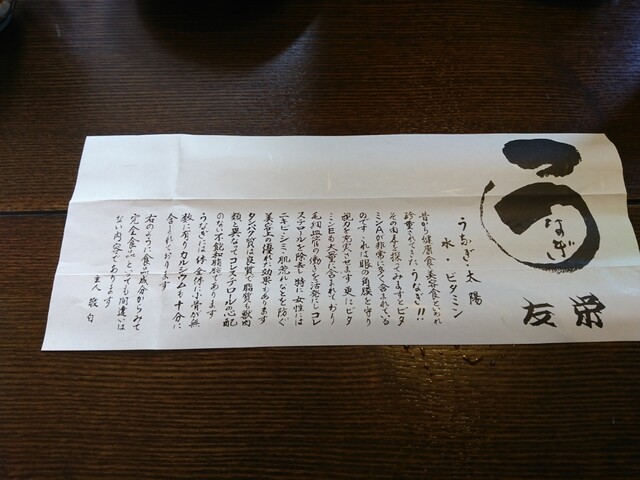 うなぎ
友栄
うなぎ・太陽
水・ビタミン
昔から健康食、美容食といわれ
珍重されてきたうなぎ!!
その由来を探ってみますとビタ
ミンAが非常に多く含まれている
のです・これは眼の角膜を守り
視力を充実させます、更にビタ
ミンEも大量に含まれており
毛細血管の働きを活発にしコレ
ステロールを除去し特に女性には
ニキビ・シミ・肌荒れなどを防ぐ
美容上の優れた効果もあります
タンパク質は良質で脂質も獣肉
類と異なってコレステロールの心配
のない不飽和脂肪であります
うなぎには一体全体小骨が無
数に有りカルシウムも十分に
含まれております
右のように食品成分からみて
完全食品といっても間違いは
ない内容であります
主人 敬白